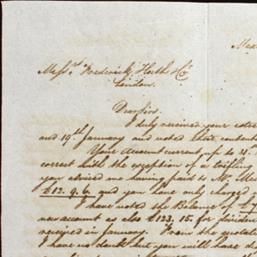 Mess.rs Frederick Huth & Co
London.
Dear Sirs.
I duly received your
and 19th January and noted their
Your account current up to 31
correct with the exception of a trifling
you advised me having paid to Mr
£12. 9. 6. and you have only charged
I have noted the Balance of £
new account as also £123. 15. for
received in January. From the
I have no doubt but you will have